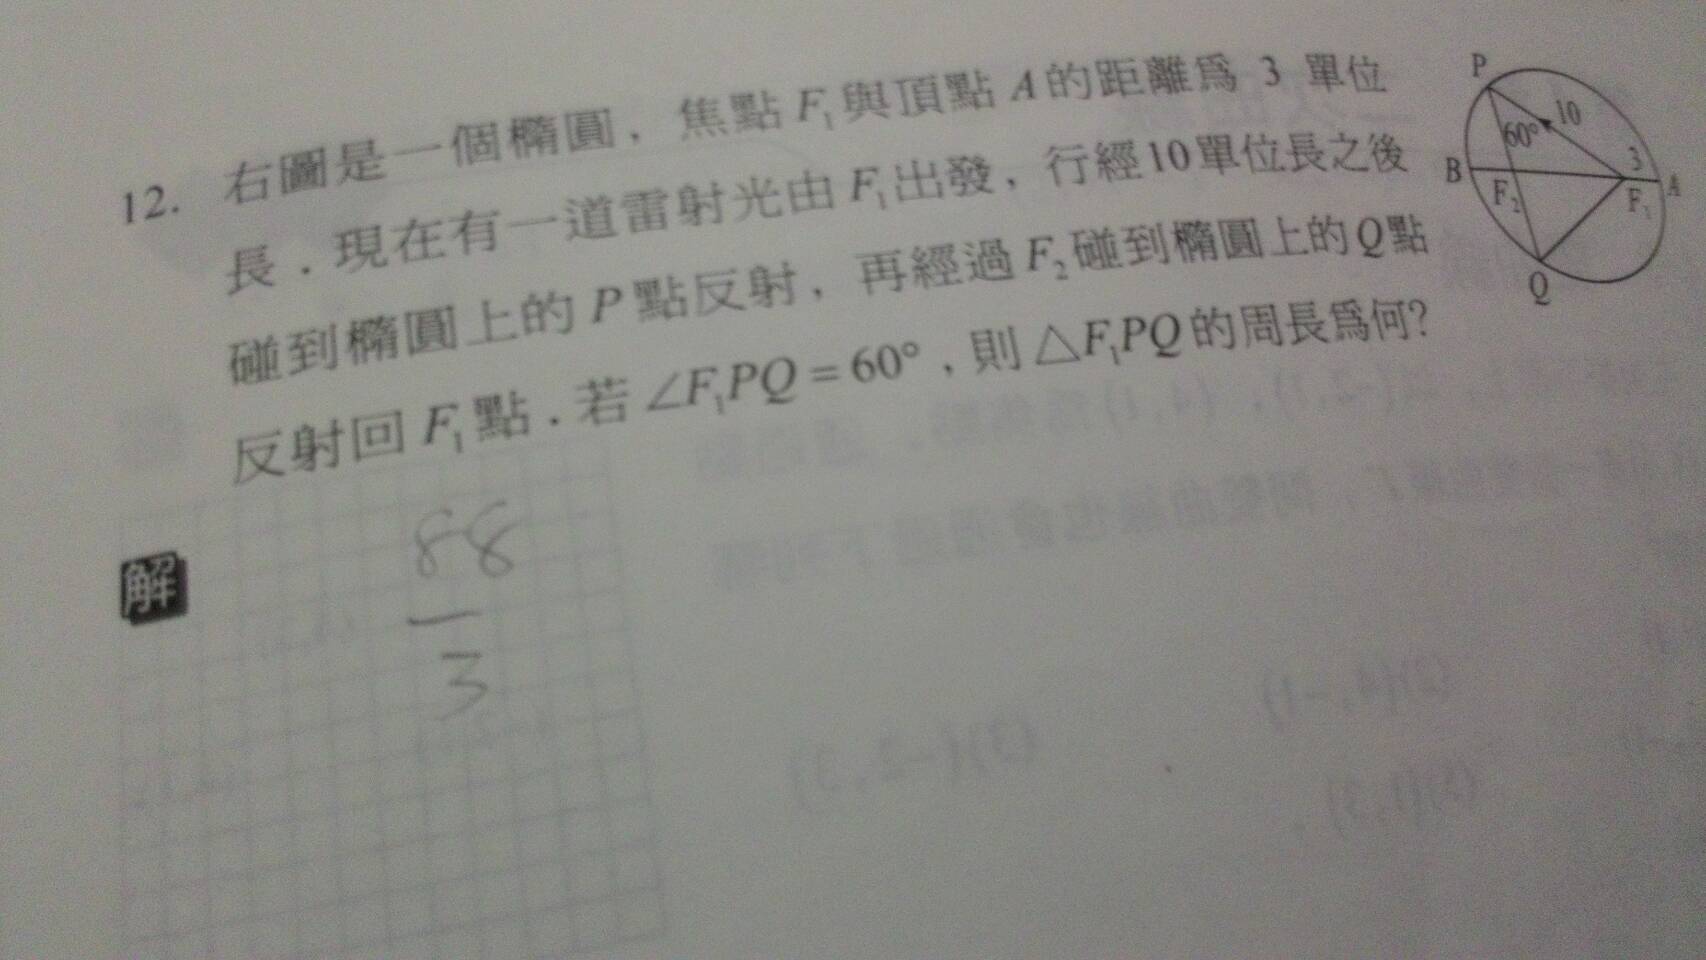 12. 右圖是一個橢圓，焦點 F₁ 與頂點 A 的距離爲 3 單位
長．現在有一道雷射光由 F₁ 出發，行經10單位長之後
碰到橢圓上的 P 點反射，再經過 F₂ 碰到橢圓上的 Q 點
反射回 F₁ 點．若 ∠F₁PQ = 60°，則 △F₁PQ 的周長爲何?
P
10
60°
3
B
F₂
F₁
A
Q
解
88
—
3
(2)(4,-1)